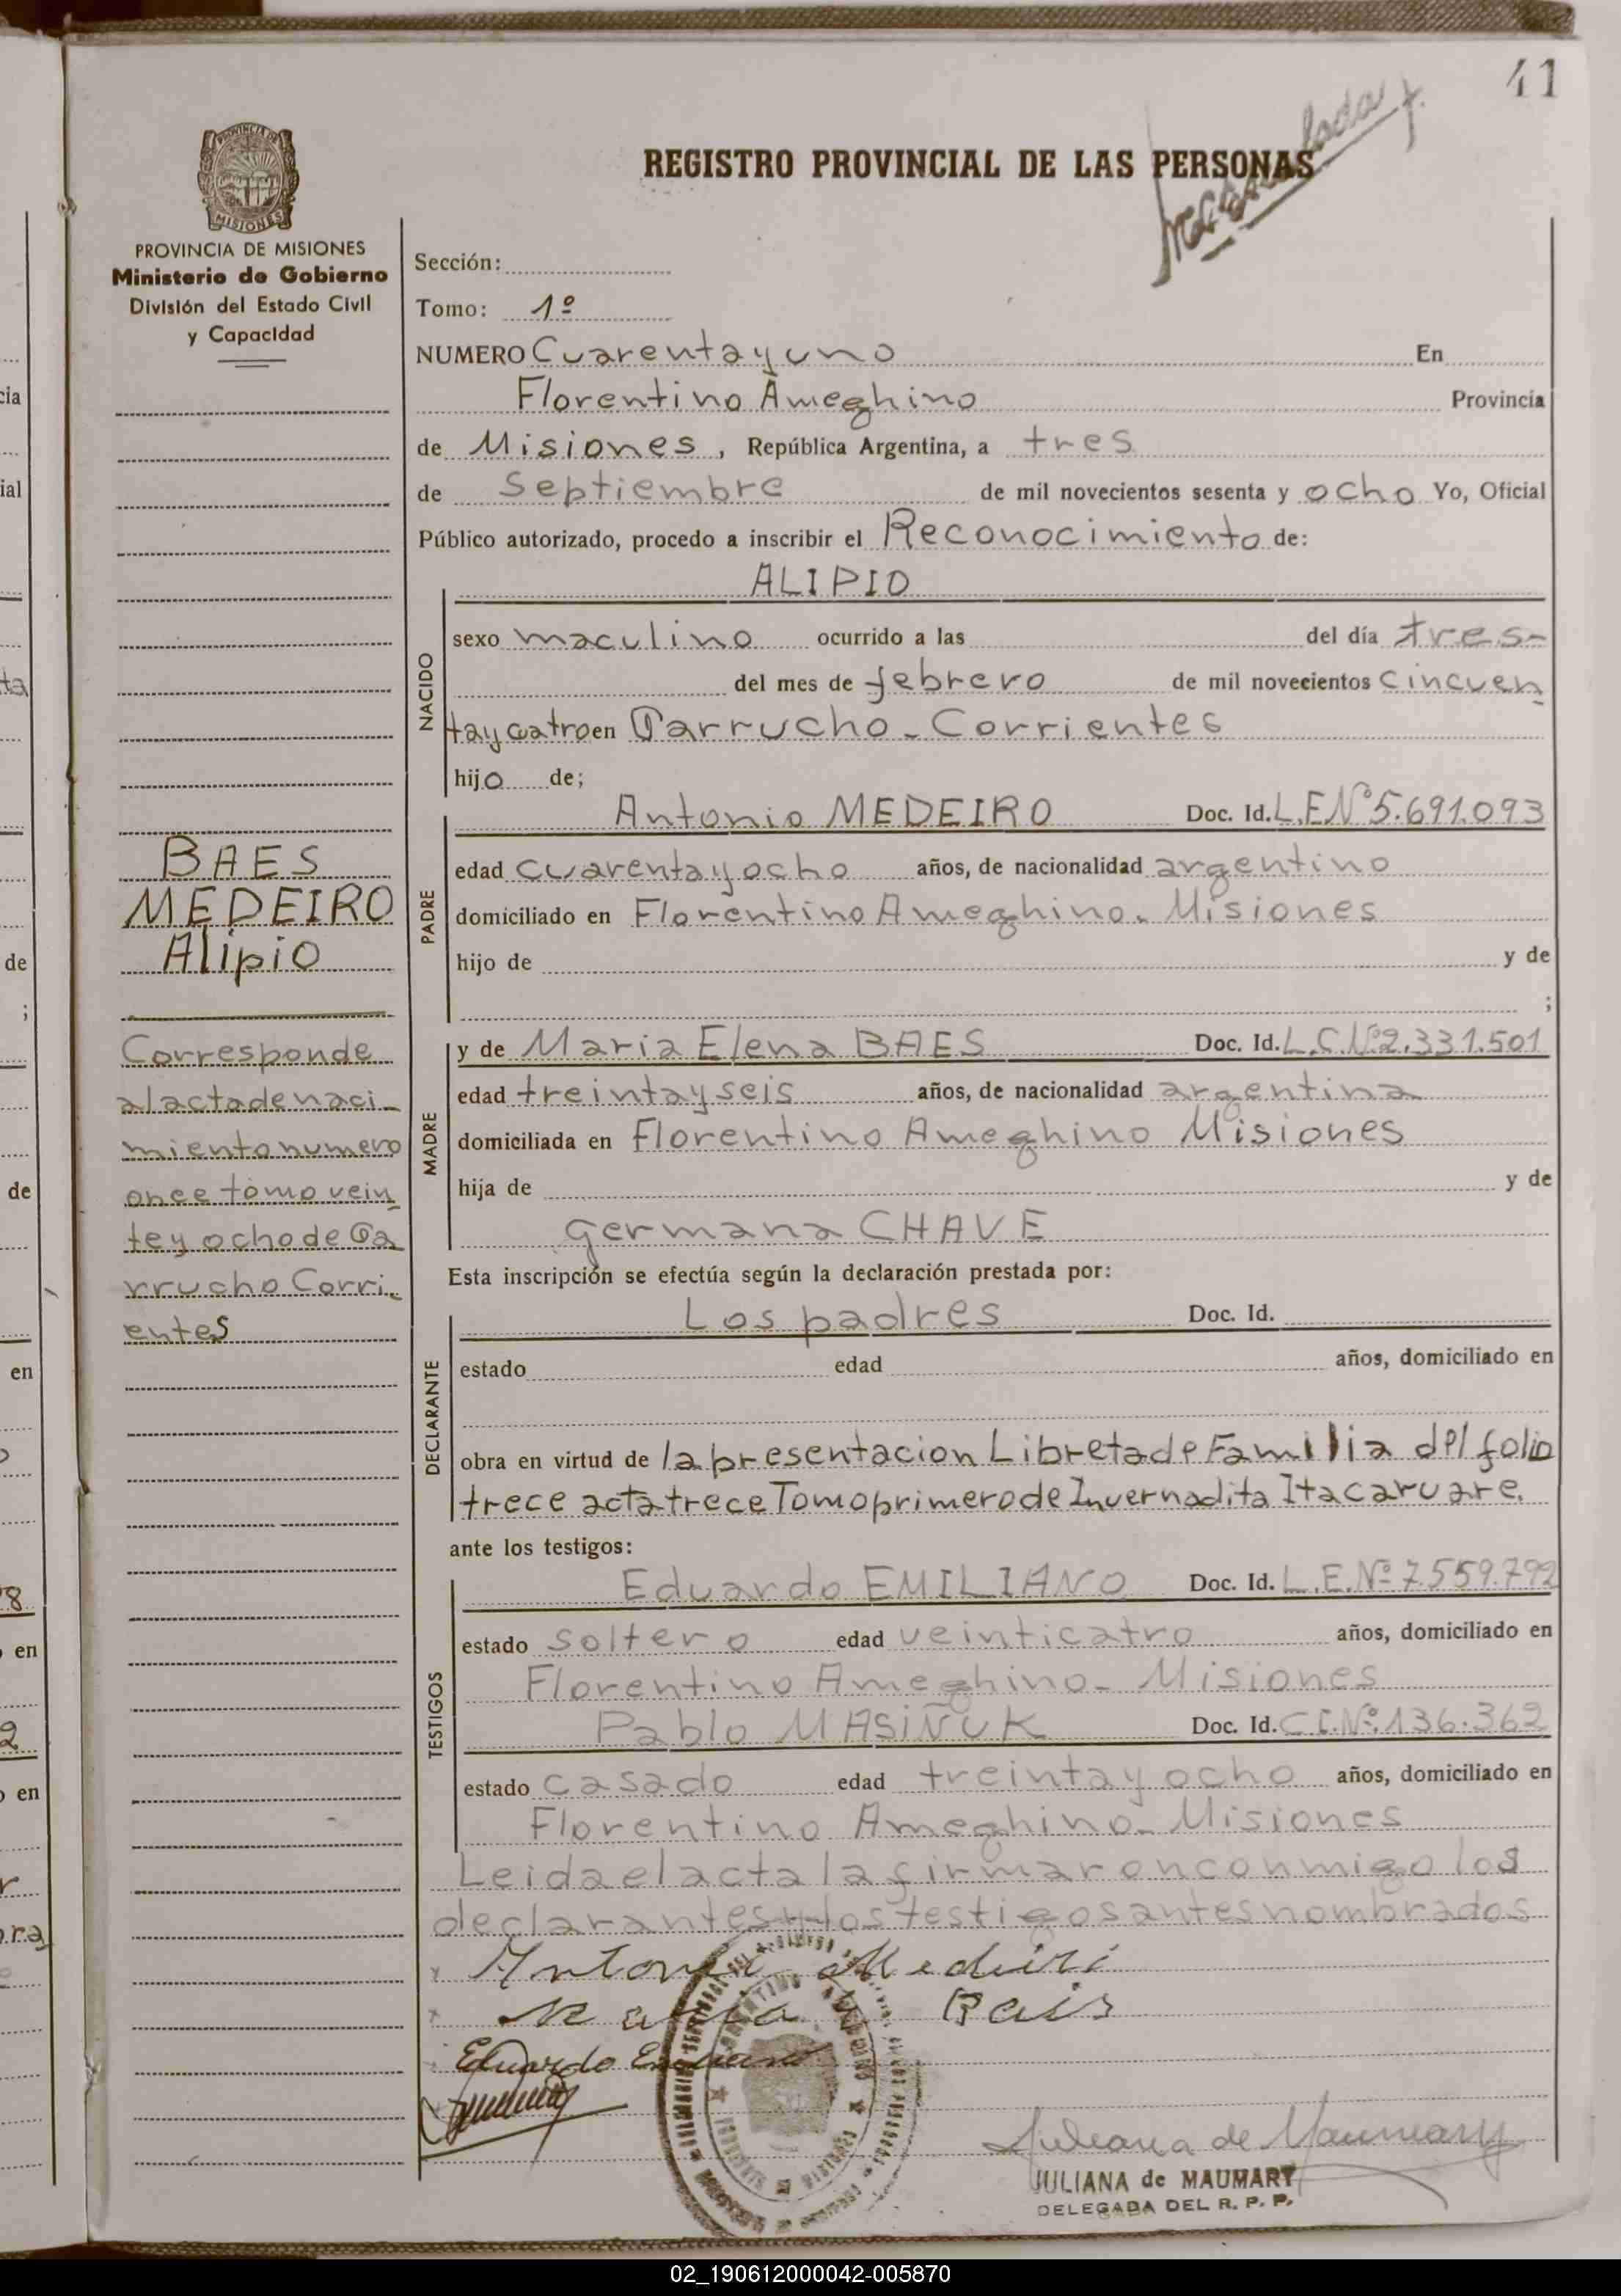 41
REGISTRO PROVINCIAL DE LAS PERSONAS
PROVINCIA DE
MISIONES
PROVINCIA DE MISIONES
Ministerio de Gobierno
División del Estado Civil
y Capacidad
BAES
MEDEIRO
Alipio
Corresponde
al acta de naci-
miento numero
once tomo vein
te y ocho de Ga
rrucho Corri-
entes
Sección:
Tomo: 1º
NUMERO Cuarenta y uno En
Florentino Ameghino Provincia
de Misiones, República Argentina, a tres
de Septiembre de mil novecientos sesenta y ocho Yo, Oficial
Público autorizado, procedo a inscribir el Reconocimiento de:
NACIDO
ALIPIO
sexo maculino ocurrido a las del día tres-
del mes de febrero de mil novecientos cincuen
ta y cuatro en Garrucho - Corrientes
hijo de;
PADRE
Antonio MEDEIRO Doc. Id. L.E Nº 5.691.093
edad cuarenta y ocho años, de nacionalidad argentino
domiciliado en Florentino Ameghino - Misiones
hijo de y de
;
MADRE
y de Maria Elena BAES Doc. Id. L.C.Nº2.331.501
edad treinta y seis años, de nacionalidad argentina
domiciliada en Florentino Ameghino Misiones
hija de y de
Germana CHAVE
Esta inscripción se efectúa según la declaración prestada por:
DECLARANTE
Los padres Doc. Id.
estado edad años, domiciliado en
obra en virtud de la presentacion Libreta de Familia del folio
trece acta trece Tomo primero de Invernadita Itacaruare.
ante los testigos:
TESTIGOS
Eduardo EMILIANO Doc. Id. L.E.Nº 7.559.792
estado soltero edad veinticatro años, domiciliado en
Florentino Ameghino - Misiones
Pablo MASIÑUK Doc. Id. C.I.Nº.136.362
estado casado edad treinta y ocho años, domiciliado en
Florentino Ameghino - Misiones
Leida el acta la firmaron conmigo los
declarantes y los testigos antes nombrados
Antonio Medeiri
Maria Bais
Eduardo Emiliano
Juliana de Maumary
JULIANA de MAUMARY
DELEGADA DEL R. P. P.
02_190612000042-005870